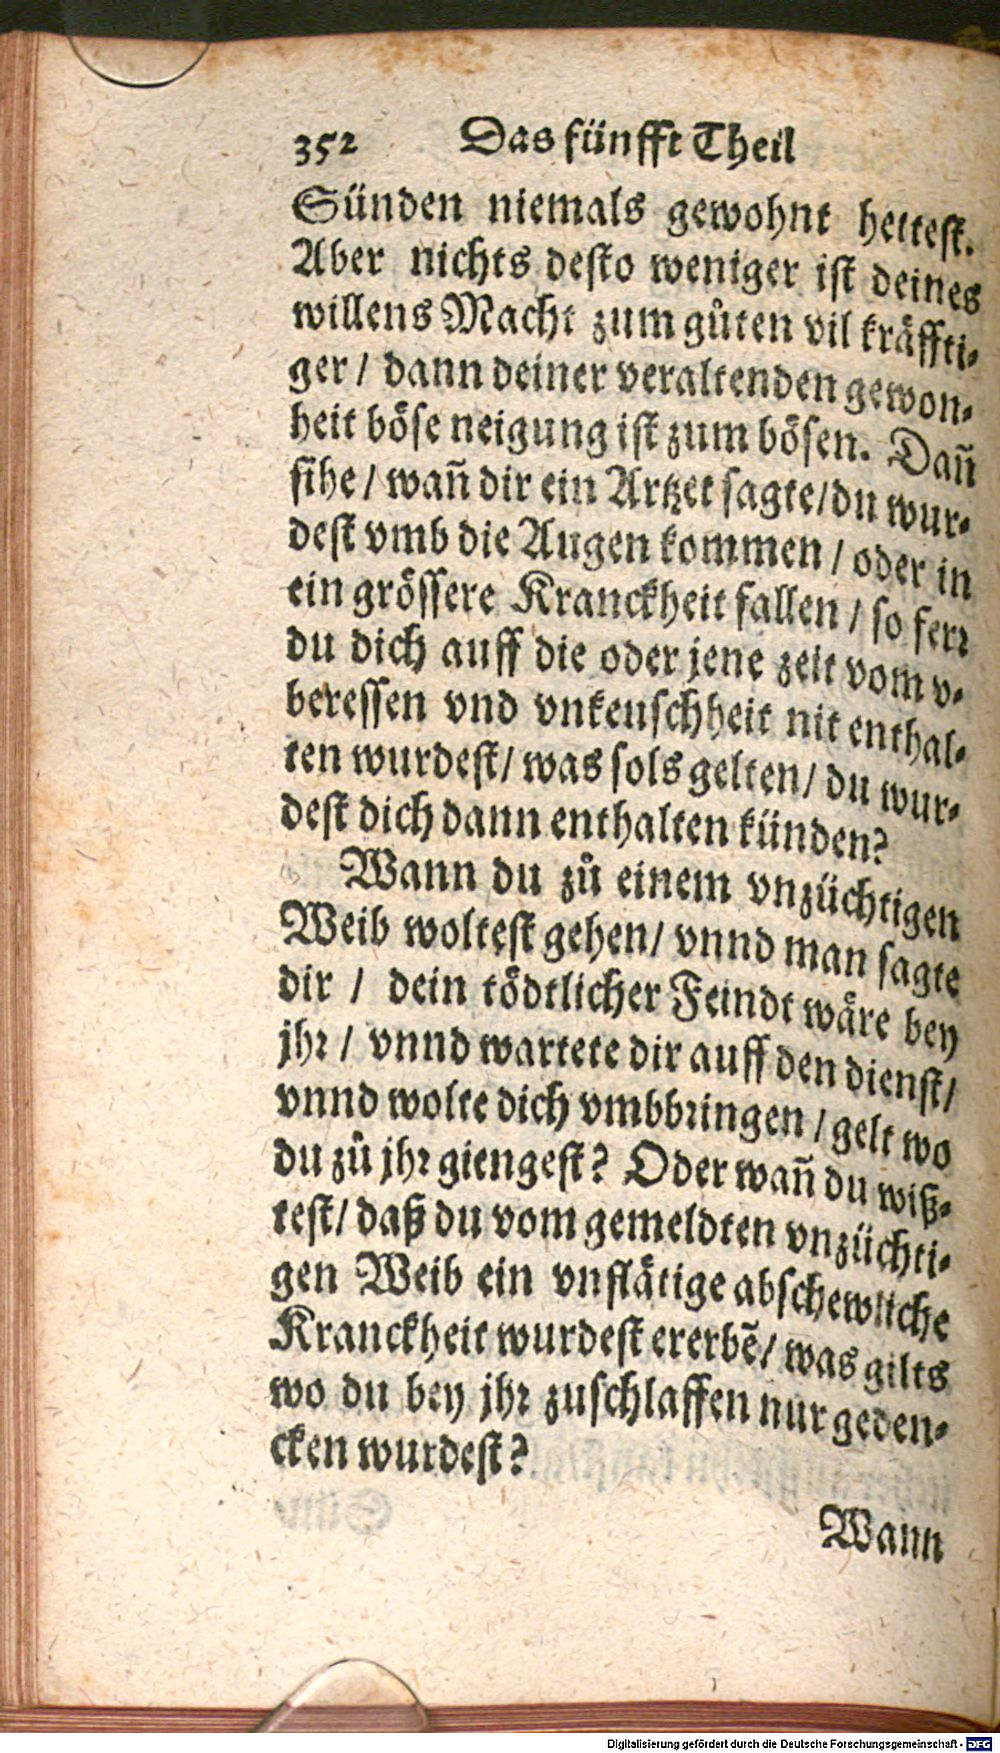 352 Das fünfft Theil
Sünden niemals gewohnt hettest.
Aber nichts desto weniger ist deines
willens Macht zum gůten vil kräffti-
ger / dann deiner veraltenden gewon-
heit böse neigung ist zum bösen. Dañ
sihe / wañ dir ein Artzet sagte / du wur-
dest vmb die Augen kommen / oder in
ein grössere Kranckheit fallen / so ferr
du dich auff die oder jene zeit vom v-
beressen vnd vnkeuschheit nit enthal-
ten wurdest / was sols gelten / du wur-
dest dich dann enthalten künden?
Wann du zů einem vnzüchtigen
Weib woltest gehen / vnnd man sagte
dir / dein tödtlicher Feindt wäre bey
jhr / vnnd wartete dir auff den dienst /
vnnd wolte dich vmbbringen / gelt wo
du zů jhr giengest? Oder wañ du wiß-
test / daß du vom gemeldten vnzüchti-
gen Weib ein vnflätige abschewliche
Kranckheit wurdest ererbẽ / was gilts
wo du bey jhr zuschlaffen nur geden-
cken wurdest?
Wann
Digitalisierung gefördert durch die Deutsche Forschungsgemeinschaft - DFG